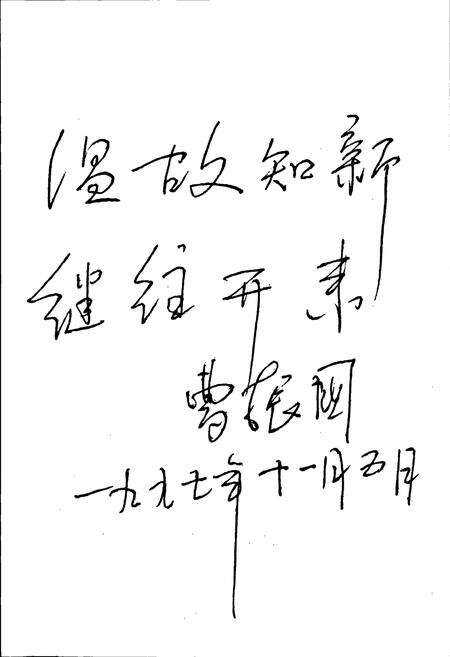 温故知新
继往开来
曹振国
一九九七年十一月五日